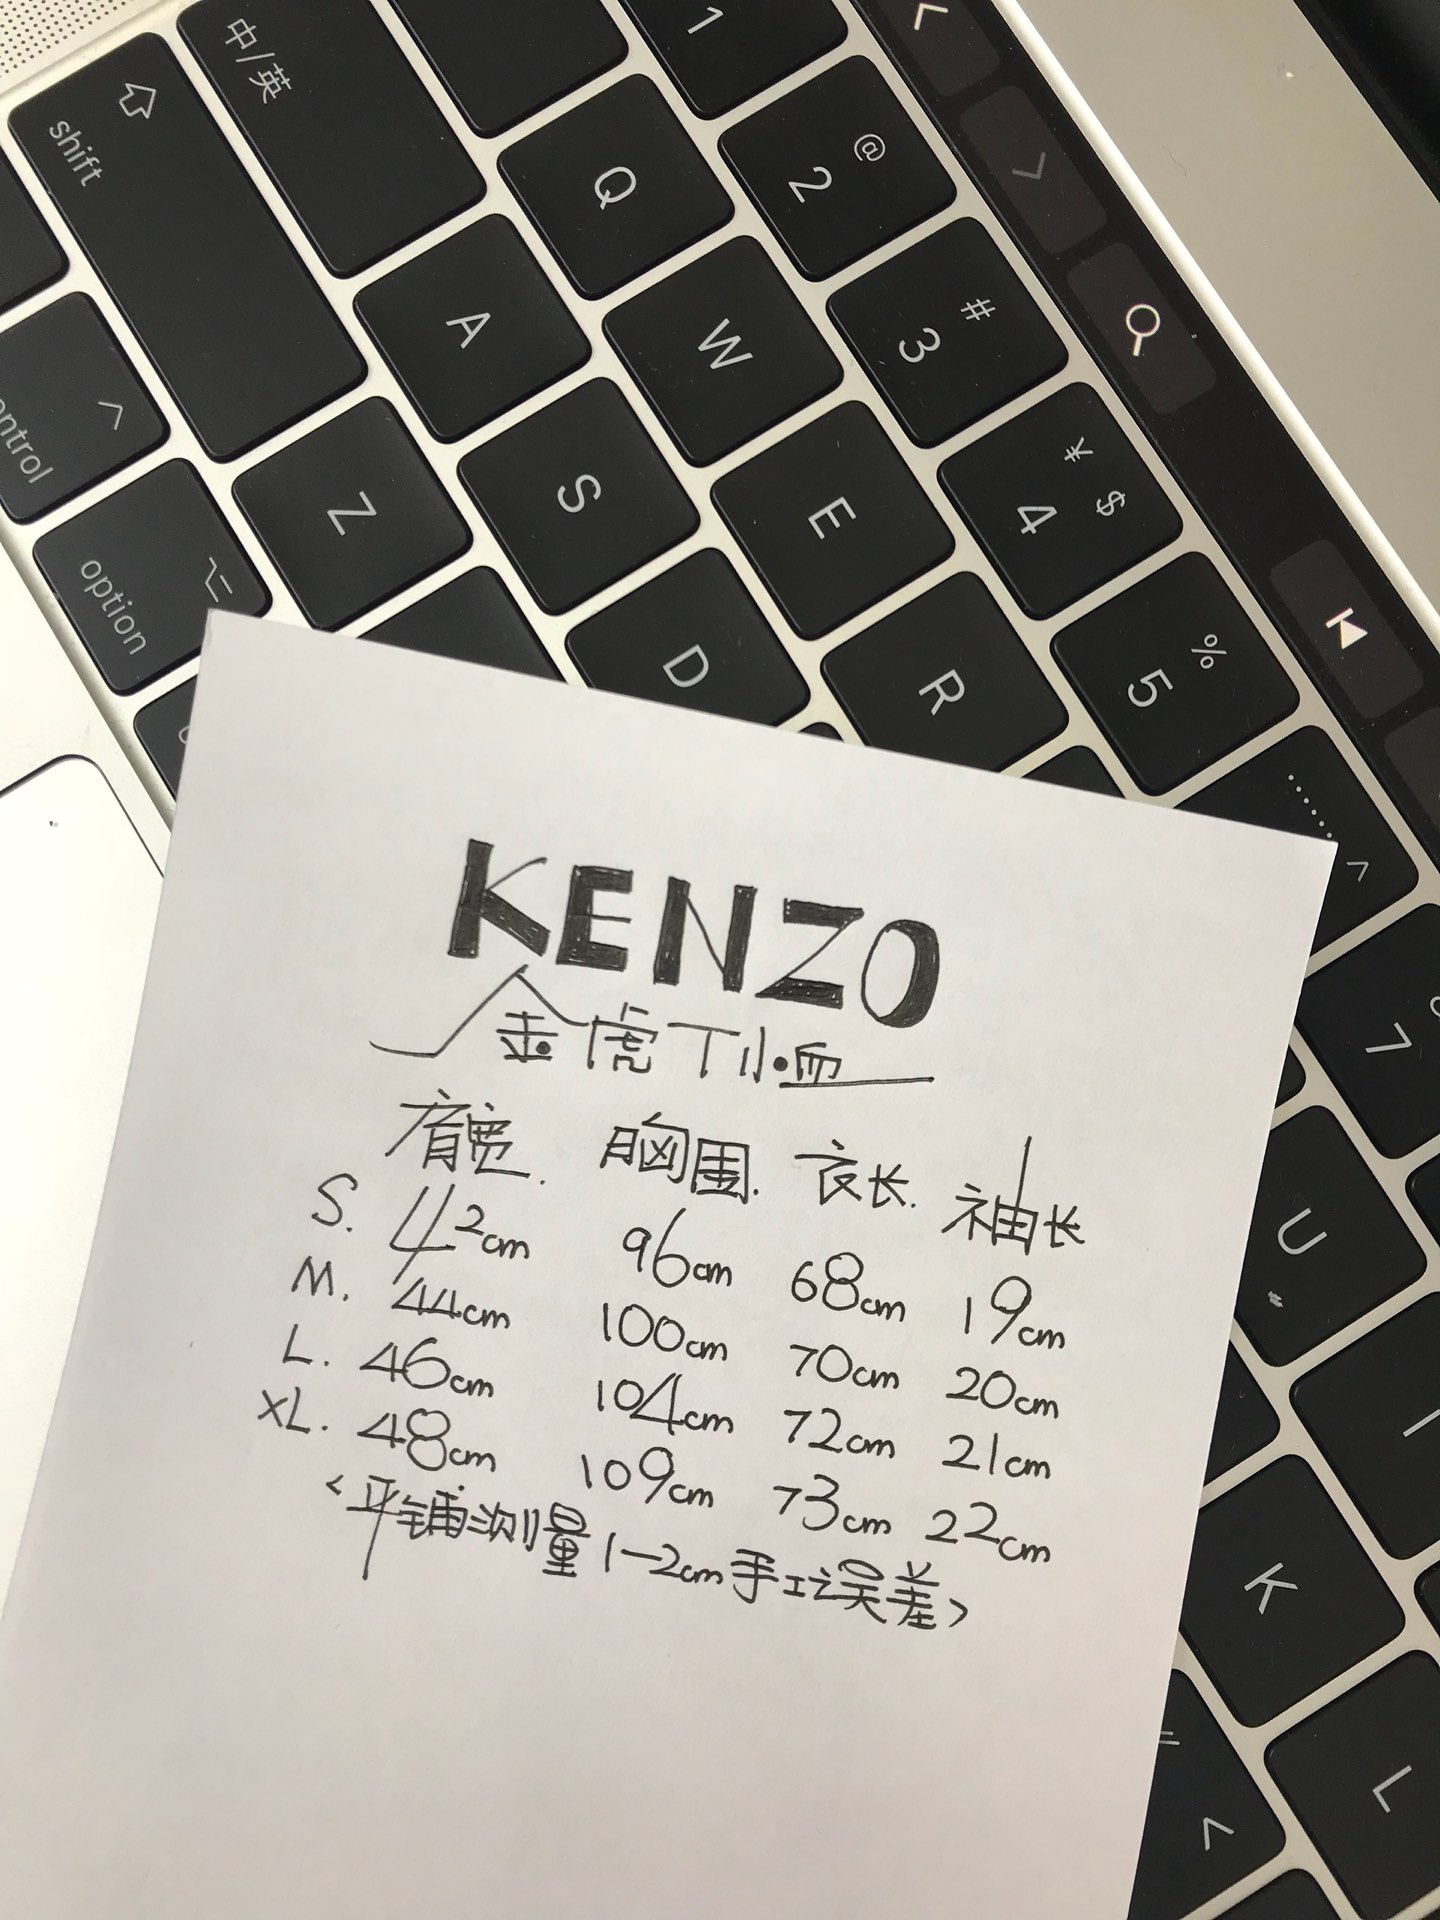 中/英
1
shift
Q
@
2
A
W
#
3
control
Z
S
E
¥ $
4
option
D
R
%
5
……
^
7
U
I
K
L
<
KENZO
金虎T恤
肩宽. 胸围. 衣长. 袖长
S. 42cm 96cm 68cm 19cm
M. 44cm 100cm 70cm 20cm
L. 46cm 104cm 72cm 21cm
XL. 48cm 109cm 73cm 22cm
<平铺测量1-2cm手工误差>